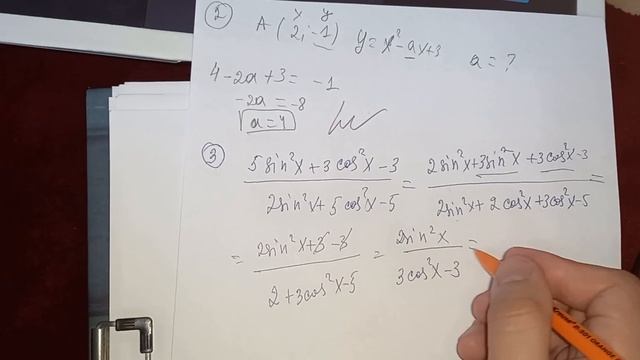 ② A (2; -1) y = x² - ax + 3 a = ?
x y
4 - 2a + 3 = -1
-2a = -8
a = 4
③ (5sin²x + 3cos²x - 3)/(2sin²x + 5cos²x - 5) = (2sin²x + 3sin²x + 3cos²x - 3)/(2sin²x + 2cos²x + 3cos²x - 5) =
= (2sin²x + 3 - 3)/(2 + 3cos²x - 5) = (2sin²x)/(3cos²x - 3) =